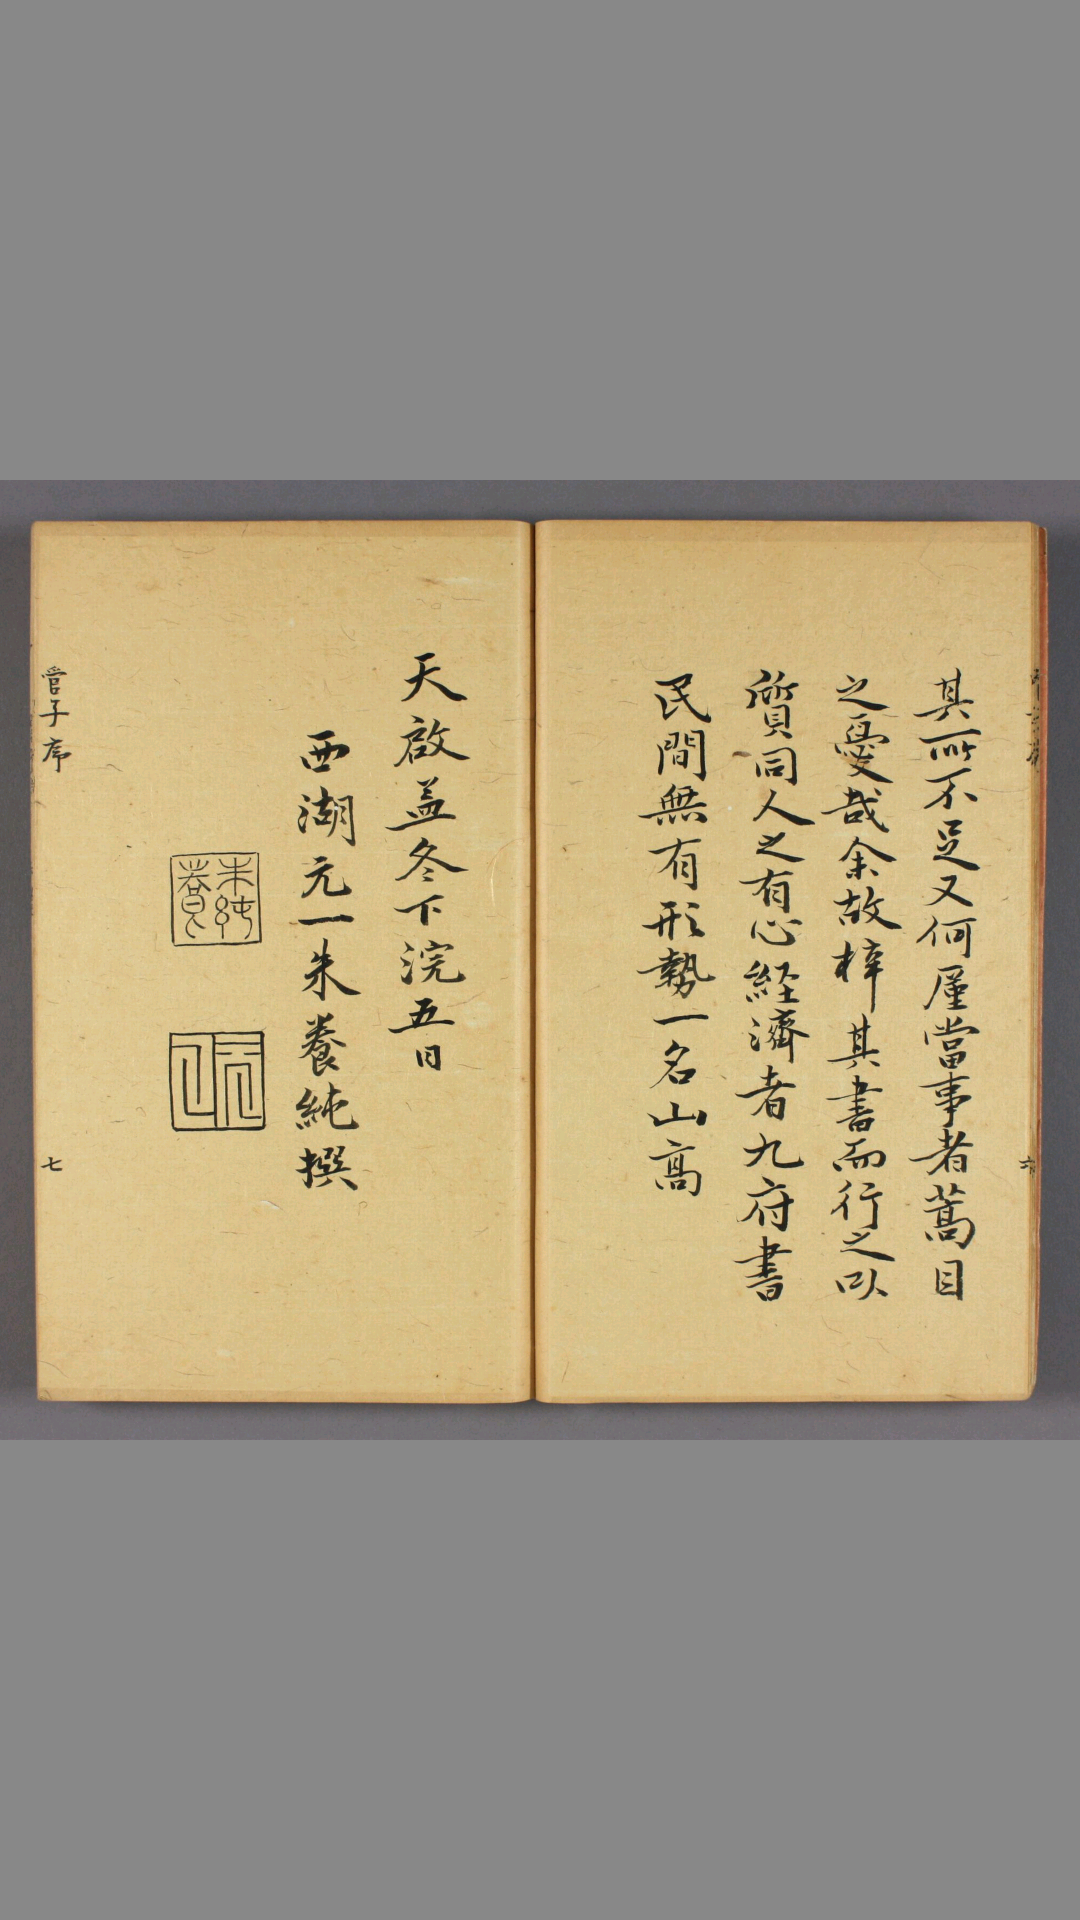 其所不足又何厪當事者蒿目
之憂哉余故梓其書而行之以
質同人之有心経濟者九府書
民間無有形勢一名山高
天啟盖冬下浣五日
西湖元一朱養純撰
朱純養
管子序
七